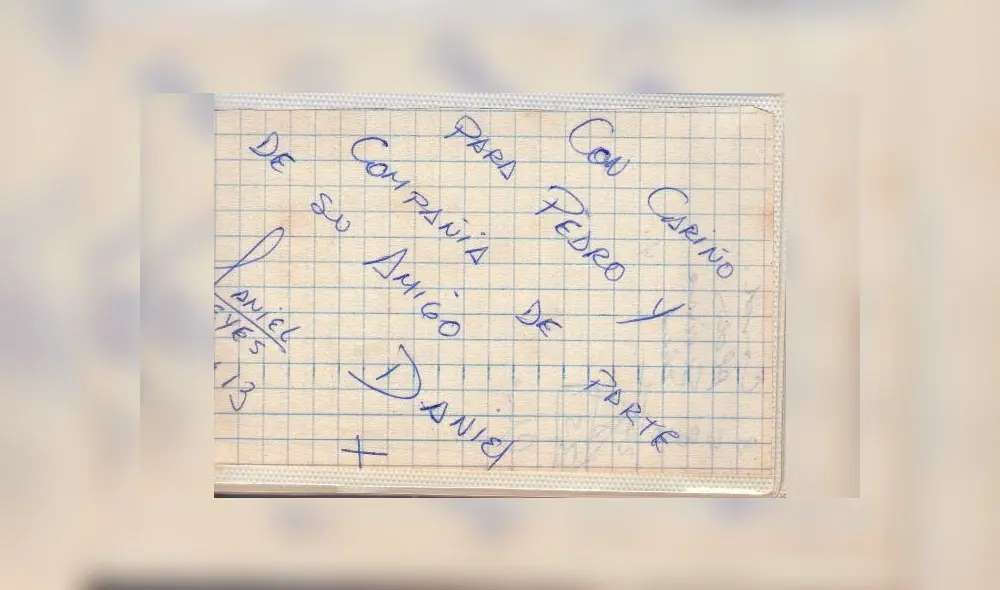 CON CARIÑO
PARA PEDRO Y
COMPAÑIA DE PARTE
DE SU AMIGO
DANIEL
+
DANIEL
EYES
13